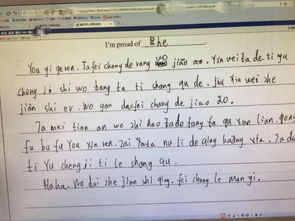 I'm proud of She
You yi ge ren. Ta fei chang de rang wo jiao ao. Yin wei ta de ti yu
cheng ji shi wo bang ta ti shang qu de. jiu yin wei zhe
jian shi er. wo gan dao fei chang de jiao ao.
Ta mei tian an wo zhi hao ta de fang fa qu xun lian. gong
fu bu fu You xin ren. zai ta nu li de qing kuang xia. Ta de
ti Yu cheng ji ti le shang qu.
Haha. Wo dui zhe jian shi qing. fei chang le man yi.